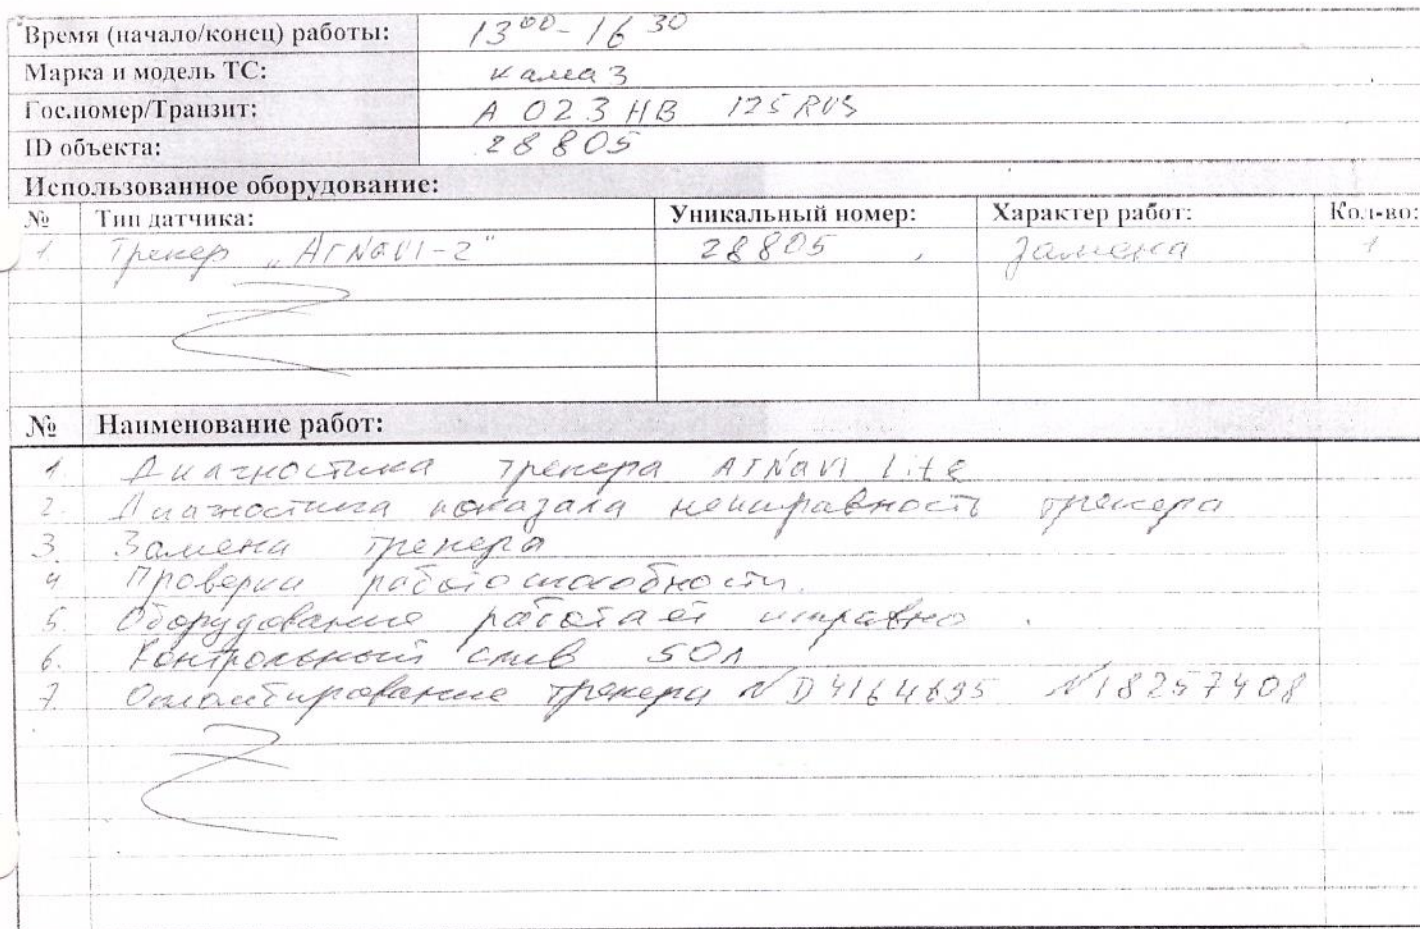 Время (начало/конец) работы: 13⁰⁰-16³⁰
Марка и модель ТС: камаз
Гос.номер/Транзит: А 023 НВ 125 RUS
ID объекта: 28805
Использованное оборудование:
№ Тип датчика: Уникальный номер: Характер работ: Кол-во:
1. Трекер „ArNaVi-2" 28805 Замена 1
№ Наименование работ:
1. Диагностика трекера ArNaVi Lite
2. Диагностика показала неисправность трекера
3. Замена трекера
4 Проверка работоспособности.
5. Оборудование работает исправно.
6. Контрольный слив 50л
7. Опломбирование трекера N D4164695 N18257408